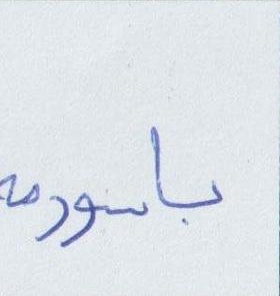 باسورمه